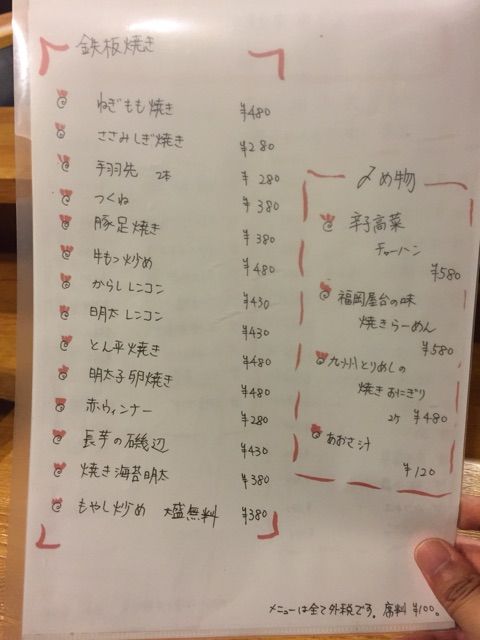 鉄板焼き
ねぎもも焼き ¥480
ささみしぎ焼き ¥280
手羽先 2本 ¥280
つくね ¥380
豚足焼き ¥380
牛もつ炒め ¥480
からしレンコン ¥430
明太レンコン ¥430
とん平焼き ¥480
明太子卵焼き ¥480
赤ウィンナー ¥280
長芋の磯辺 ¥430
焼き海苔明太 ¥380
もやし炒め 大盛無料 ¥380
〆め物
辛子高菜
チャーハン
¥580
福岡屋台の味
焼きらーめん
¥580
九州とりめしの
焼おにぎり
2ケ ¥480
あおさ汁
¥120
メニューは全て外税です。席料 ¥100。